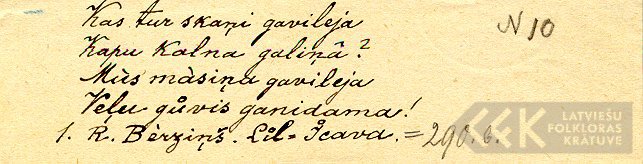 Kas tur skaņi gavilēja
N 10
Kapu kalna galiņâ?
Mùs màsiņa gavilēja
Veļu gůvis ganidama!
1. R. Bèrziņš. Lìl-Icava. = 290. b.
LFK LATVIEŠU FOLKLORAS KRĀTUVE